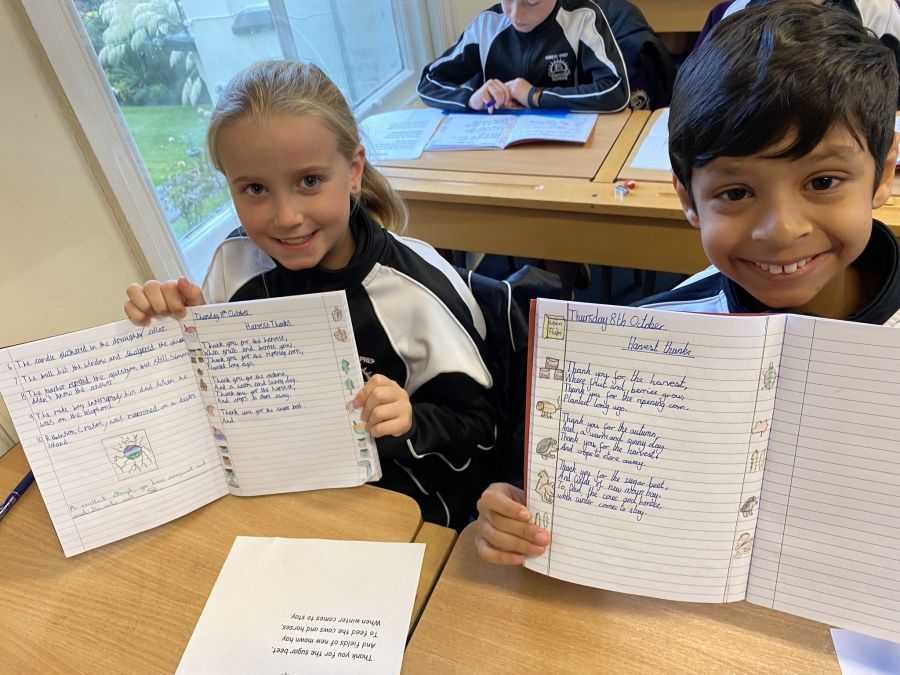 6. The candle flickered in the draughty cellar.
7. The ball hit the window and shattered the
8. The teacher repeated the question but still Simon
didn't know the answer.
9. The rude boy interrupted his and when he
was on the telephone.
10. Robinson Crusoe was marooned on a desert
island.
An excellent attempt,
Thursday 8th October
Harvest Thanks
Thank you for the harvest,
Where fruit and berries grow,
Thank you for the ripening corn,
Planted long ago.
Thank you for the autumn,
And a warm and sunny day.
Thank you for the harvest,
And crops to store away.
Thank you for the sugar beet,
And
Thursday 8th October
Harvest thanks
Thank you for the harvest,
Where fruit and berries grow,
Thank you for the ripening corn,
Planted long ago.
Thank you for the autumn,
And a warm and sunny day,
Thank you for the harvest,
And crops to store away.
Thank you for the sugar beet,
And fields of new mown hay.
To feed the cows and horses,
when winter comes to stay.
corn
flakes
Thank you for the sugar beet,
And fields of new mown hay.
To feed the cows and horses,
When winter comes to stay.
FOREST PREP
PREP